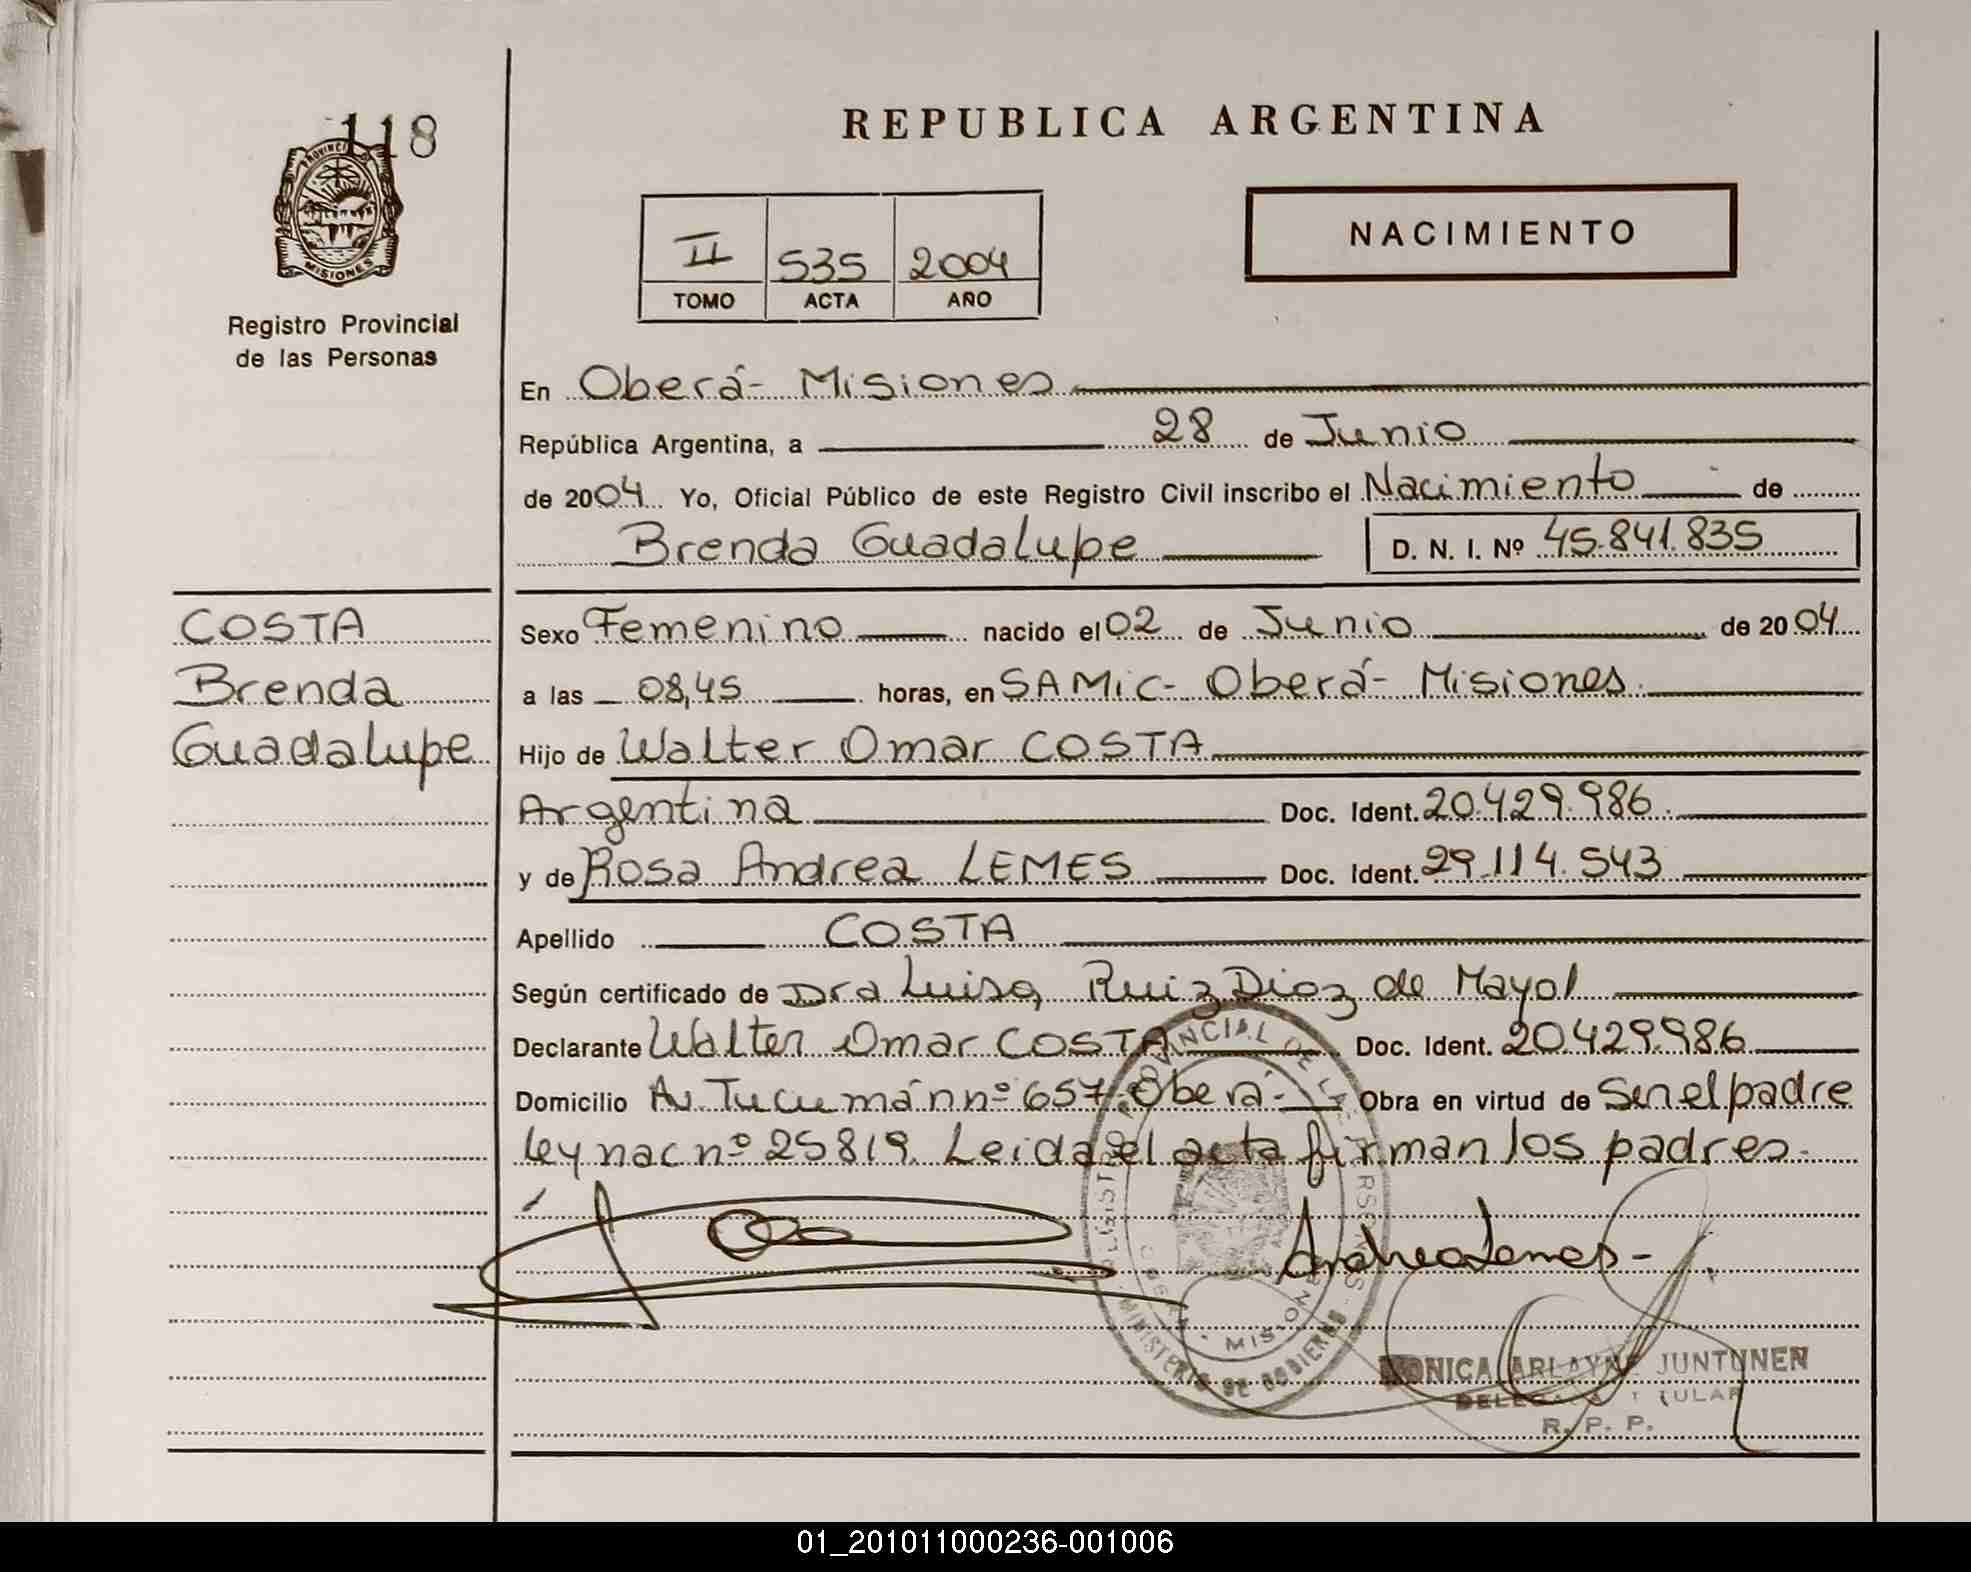 118
PROVINCIA DE
MISIONES
Registro Provincial
de las Personas
COSTA
Brenda
Guadalupe
REPUBLICA ARGENTINA
II 535 2004
TOMO ACTA AÑO
NACIMIENTO
En Oberá- Misiones
República Argentina, a 28 de Junio
de 2004 Yo, Oficial Público de este Registro Civil inscribo el Nacimiento de
Brenda Guadalupe D. N. I. Nº 45.841.835
Sexo Femenino nacido el 02 de Junio de 2004
a las 08,45 horas, en SAMiC- Oberá- Misiones
Hijo de Walter Omar COSTA
Argentina Doc. Ident. 20.429.986.
y de Rosa Andrea LEMES Doc. Ident. 29.114.543
Apellido COSTA
Según certificado de Dra Luisa Ruiz Diaz de Mayol
Declarante Walter Omar COSTA Doc. Ident. 20.429.986
Domicilio Av. Tucumán nº 657. Oberá- Obra en virtud de Ser el padre
ley nac nº 25819. Leida el acta firman los padres.
Andrea Lemes-
MINISTERIO DE GOBIERNO
MISIONES
MONICA ARLAYNE JUNTUNEN
DELEGADA TITULAR
R. P. P.
01_201011000236-001006